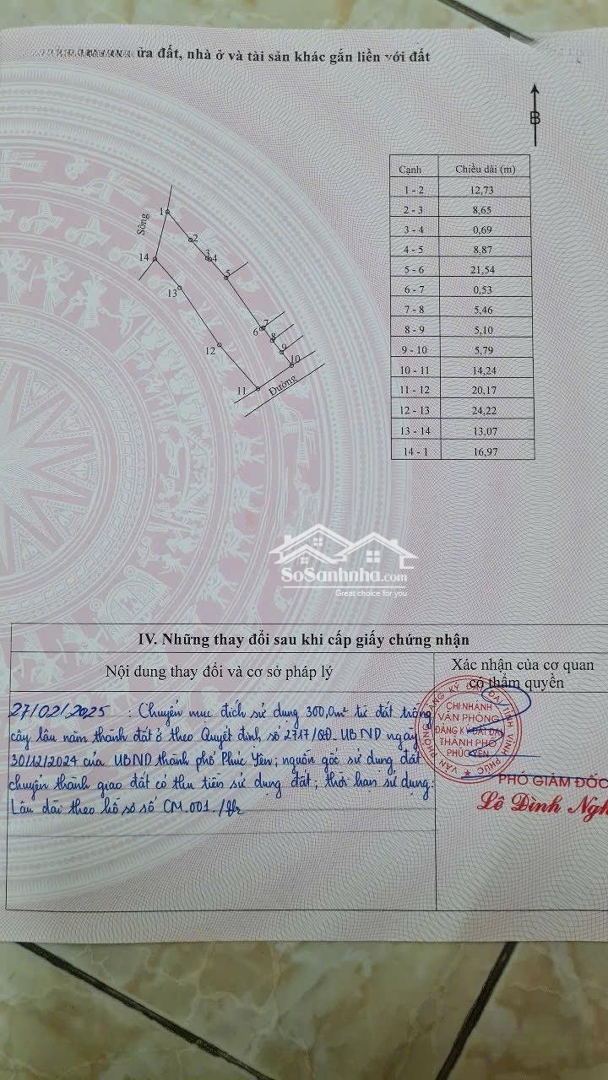 ửa đất, nhà ở và tài sản khác gắn liền với đất
B
Cạnh Chiều dài (m)
1 - 2 12,73
2 - 3 8,65
3 - 4 0,69
4 - 5 8,87
5 - 6 21,54
6 - 7 0,53
7 - 8 5,46
8 - 9 5,10
9 - 10 5,79
10 - 11 14,24
11 - 12 20,17
12 - 13 24,22
13 - 14 13,07
14 - 1 16,97
Sông
1
2
3
4
14
5
13
7
6
8
12
9
10
11
Đường
SoSanhnha.com
Great choice for you
IV. Những thay đổi sau khi cấp giấy chứng nhận
Nội dung thay đổi và cơ sở pháp lý
Xác nhận của cơ quan
có thẩm quyền
27/02/2025 : Chuyển mục đích sử dụng 300,0m² từ đất trồng
cây lâu năm thành đất ở theo Quyết định số 2717/QĐ.UBND ngày
30/12/2024 của UBND thành phố Phúc Yên; nguồn gốc sử dụng đất
chuyển thành giao đất có thu tiền sử dụng đất; thời hạn sử dụng:
Lâu dài theo hồ sơ số CM.001./
CHI NHÁNH
VĂN PHÒNG
ĐĂNG KÝ ĐẤT ĐAI
THÀNH PHỐ
PHÚC YÊN
PHÓ GIÁM ĐỐC
Lê Đình